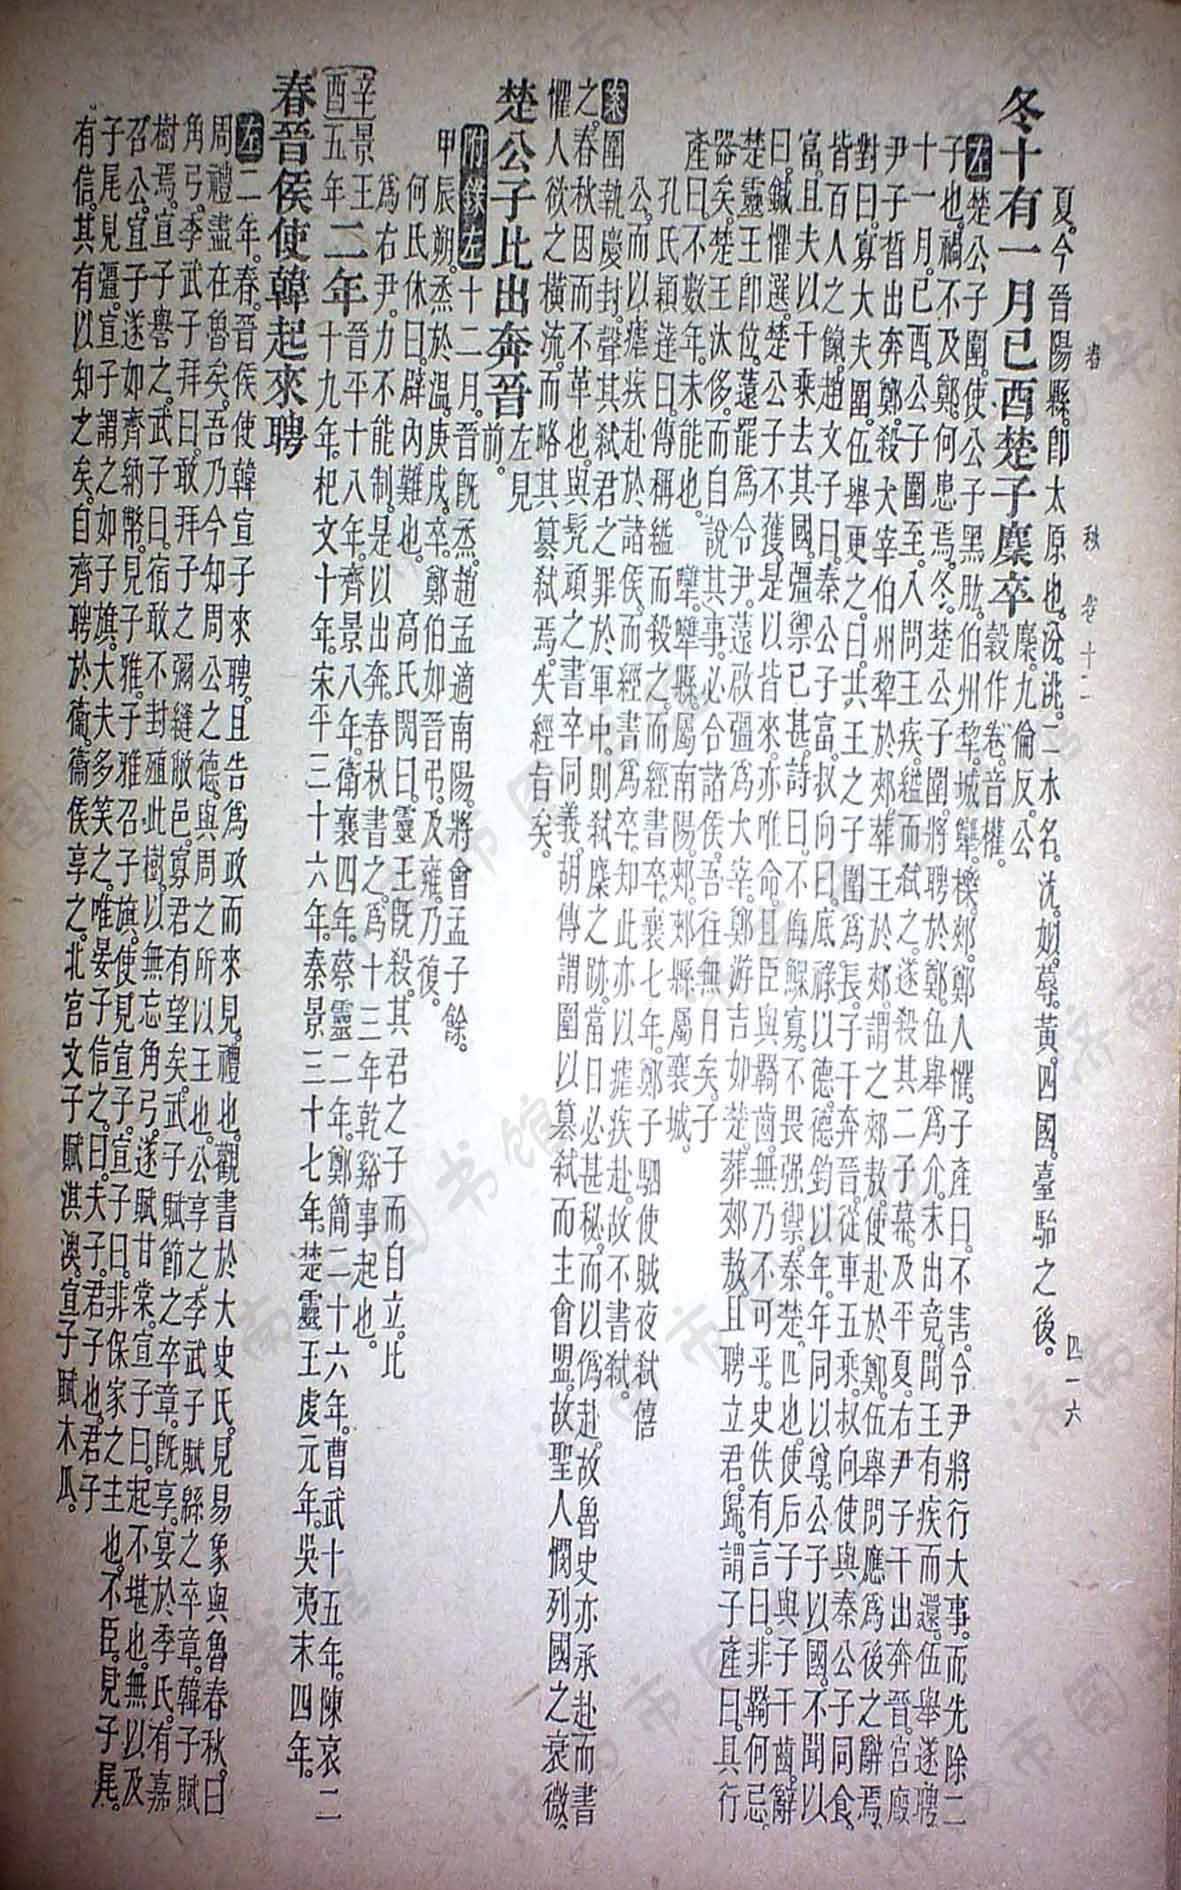 春 秋 卷十二 四一六
夏。今晉陽縣。卽太原也。汾。洮。二水名。沈。姒。蓐。黃。四國。臺駘之後。
冬十有一月己酉楚子麇卒 麇。九倫反。公
穀作卷。音權。
左楚公子圍。使公子黑肱。伯州犂。城犫。櫟。郟。鄭人懼。子產曰。不害。令尹將行大事。而先除二
子也。禍不及鄭。何患焉。冬。楚公子圍。將聘於鄭。伍舉爲介。未出竟。聞王有疾而還。伍舉遂聘。
十一月。己酉。公子圍至。入問王疾。縊而弒之。遂殺其二子幕。及平夏。右尹子干出奔晉。宮廄
尹子晳出奔鄭。殺大宰伯州犂於郟。葬王於郟。謂之郟敖。使赴於鄭。伍舉問應爲後之辭焉。
對曰。寡大夫圍。伍舉更之。曰。共王之子圍爲長。子干奔晉。從車五乘。叔向使與秦公子同食。
皆百人之餼。趙文子曰。秦公子富。叔向曰。底祿以德。德鈞以年。年同以尊。公子以國。不聞以
富。且夫以千乘去其國。彊禦已甚。詩曰。不侮鰥寡。不畏强禦。秦楚。匹也。使后子與子干齒。辭
曰。鍼懼選。楚公子不獲。是以皆來。亦唯命。且臣與羇齒。無乃不可乎。史佚有言曰。非羇何忌。
楚靈王卽位。薳罷爲令尹。薳啟彊爲大宰。鄭游吉如楚。葬郟敖。且聘立君。歸。謂子產曰。具行
器矣。楚王汰侈。而自說其事。必合諸侯。吾往無日矣。子
產曰。不數年。未能也。 犫。犫縣。屬南陽。郟。郟縣。屬襄城。
孔氏穎達曰。傳稱縊而殺之。而經書卒。襄七年。鄭子駟使賊夜弒僖
公。而以瘧疾赴於諸侯。而經書爲卒。知此亦以瘧疾赴。故不書弒。
案圍執慶封。聲其弒君之罪於軍中。則弒麇之跡。當日必甚秘。而以僞赴。故魯史亦承赴而書
之。春秋因而不革也。與髡頑之書卒同義。胡傳謂圍以篡弒而主會盟。故聖人憫列國之衰微。
懼人欲之橫流。而略其篡弒焉。失經旨矣。
楚公子比出奔晉 左見
前。
附錄左十二月。晉旣烝。趙孟適南陽。將會孟子餘。
甲辰朔。烝於溫。庚戌。卒。鄭伯如晉弔。及雍。乃復。
何氏休曰。辟內難也。 高氏閌曰。靈王旣殺。其君之子而自立。比
爲右尹。力不能制。是以出奔。春秋書之。爲十三年乾谿事起也。
辛酉 景王五年 二年 晉平十八年。齊景八年。衛襄四年。蔡靈二年。鄭簡二十六年。曹武十五年。陳哀二
十九年。杞文十年。宋平三十六年。秦景三十七年。楚靈王虔元年。吳夷末四年。
春晉侯使韓起來聘
左二年。春。晉侯使韓宣子來聘。且告爲政而來見。禮也。觀書於大史氏。見易象與魯春秋。曰
周禮盡在魯矣。吾乃今知周公之德。與周之所以王也。公享之。季武子賦緜之卒章。韓子賦
角弓。季武子拜曰。敢拜子之彌縫敝邑。寡君有望矣。武子賦節之卒章。旣享。宴於季氏。有嘉
樹焉。宣子譽之。武子曰。宿敢不封殖此樹。以無忘角弓。遂賦甘棠。宣子曰。起不堪也。無以及
召公。宣子遂如齊納幣。見子雅。子雅召子旗。使見宣子。宣子曰。非保家之主也。不臣。見子尾。
子尾見彊。宣子謂之如子旗。大夫多笑之。唯晏子信之。曰。夫子。君子也。君子
有信。其有以知之矣。自齊聘於衞。衞侯享之。北宮文子賦淇澳。宣子賦木瓜。